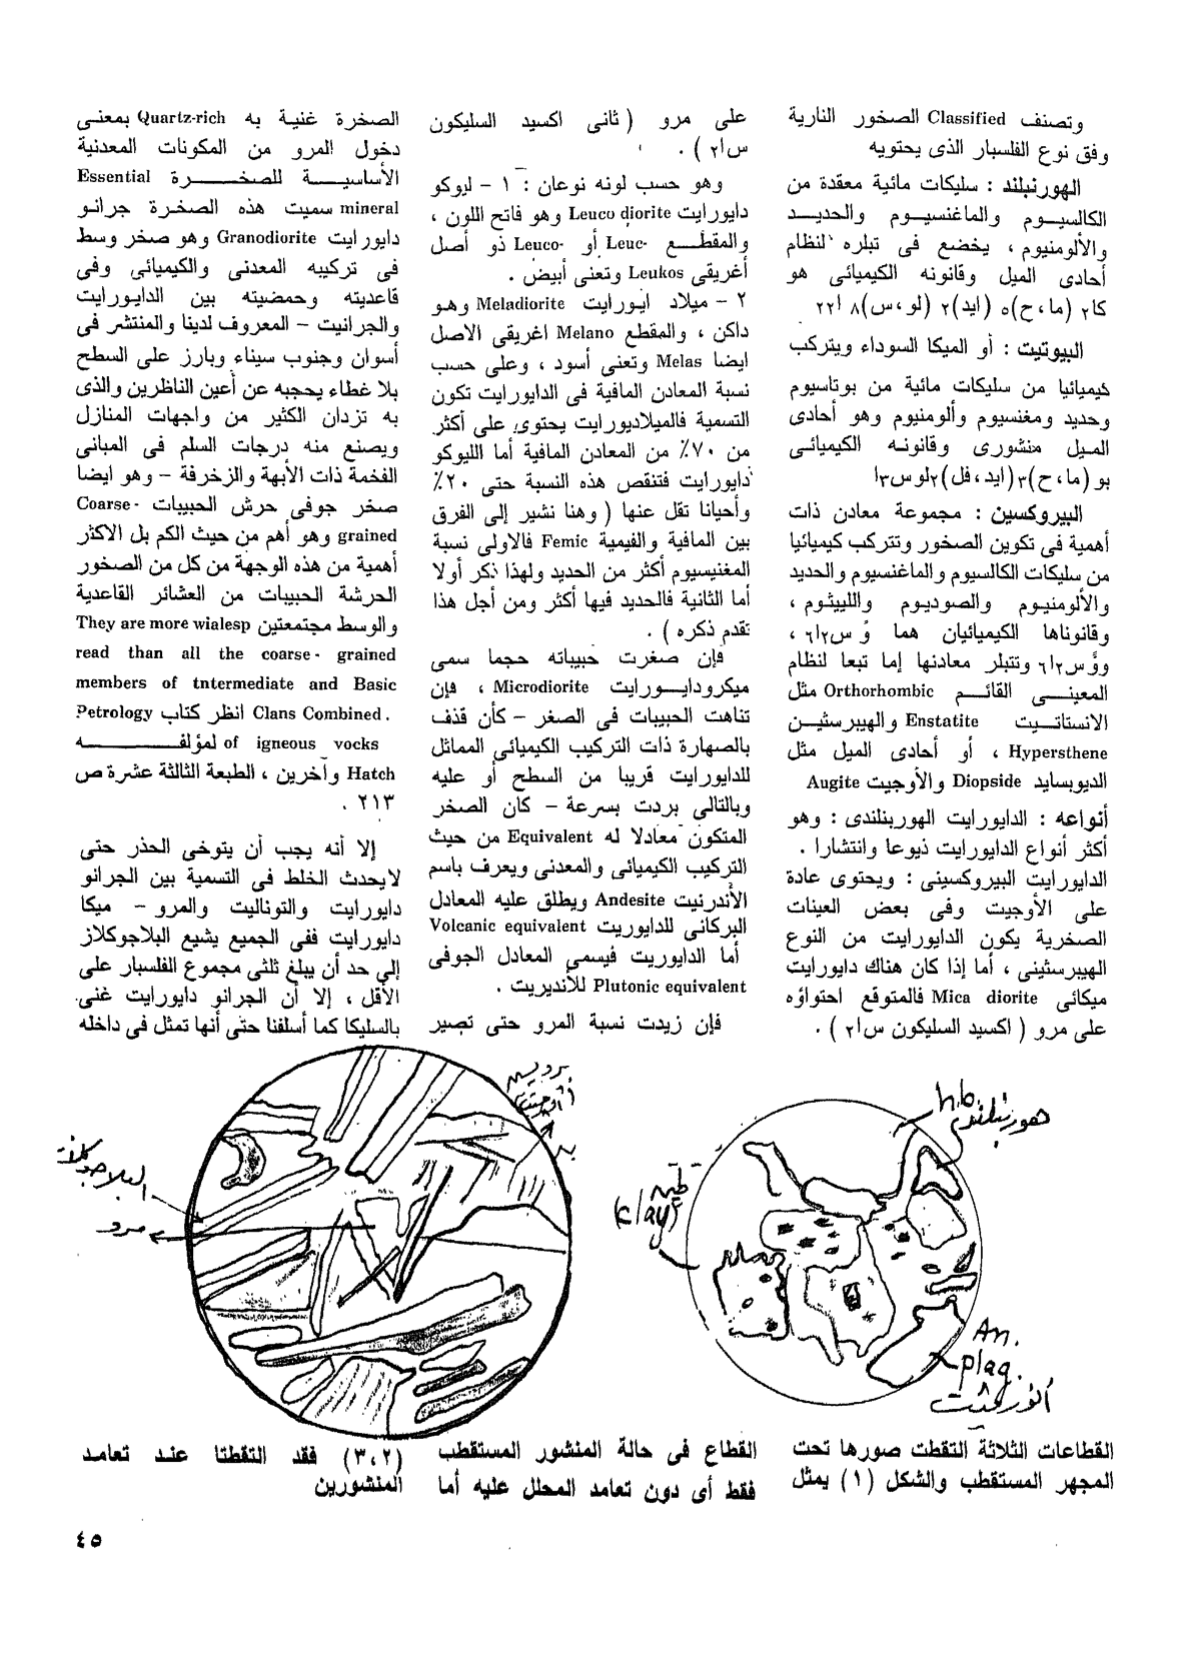 وتصنف Classified الصخور النارية
وفق نوع الفلسبار الذى يحتويه
الهورنبلند : سليكات مائية معقدة من
الكالسيوم والماغنسيوم والحديد
والألومنيوم ، يخضع فى تبلره لنظام
أحادى الميل وقانونه الكيميائى هو
كا٢ (ما،ح)٥ (ايد)٢ (لو،س)٨ ا٢٢
البيوتيت : أو الميكا السوداء ويتركب
كيميائيا من سليكات مائية من بوتاسيوم
وحديد ومغنسيوم وألومنيوم وهو أحادى
الميل منشورى وقانونه الكيميائى
بو (ما،ح)٣(ايد،فل)٢لوس٣ا
البيروكسين : مجموعة معادن ذات
أهمية فى تكوين الصخور وتتركب كيميائيا
من سليكات الكالسيوم والماغنسيوم والحديد
والألومنيوم والصوديوم والليثوم ،
وقانوناها الكيميائيان هما وُ س٢ا٦ ،
ووُس٢ا٦ وتتبلر معادنها إما تبعا لنظام
المعينى القائم Orthorhombic مثل
الانستاتيت Enstatite والهيبرسثين
Hypersthene ، أو أحادى الميل مثل
الديوبسايد Diopside والأوجيت Augite
أنواعه : الدايورايت الهوربنلندى : وهو
أكثر أنواع الدايورايت ذيوعا وانتشارا .
الدايورايت البيروكسينى : ويحتوى عادة
على الأوجيت وفى بعض العينات
الصخرية يكون الدايورايت من النوع
الهيبرسثينى ، أما إذا كان هناك دايورايت
ميكائى Mica diorite فالمتوقع احتواؤه
على مرو ( اكسيد السليكون س٢ا ) .
على مرو ( ثانى اكسيد السليكون
س٢ا ) .
وهو حسب لونه نوعان : ١ – ليوكو
دايورايت Leuco diorite وهو فاتح اللون ،
والمقطع Leuc- أو Leuco- ذو أصل
أغريقى Leukos وتعنى أبيض .
٢ – ميلاد ايورايت Meladiorite وهو
داكن ، والمقطع Melano اغريقى الاصل
ايضا Melas وتعنى أسود ، وعلى حسب
نسبة المعادن المافية فى الدايورايت تكون
التسمية فالميلاديورايت يحتوى على أكثر
من ٧٠٪ من المعادن المافية أما الليوكو
دايورايت فتنقص هذه النسبة حتى ٢٠٪
وأحيانا تقل عنها ( وهنا نشير إلى الفرق
بين المافية والفيمية Femic فالاولى نسبة
المغنيسيوم أكثر من الحديد ولهذا ذكر أولا
أما الثانية فالحديد فيها أكثر ومن أجل هذا
تقدم ذكره ) .
فإن صغرت حبيباته حجما سمى
ميكرودايورايت Microdiorite ، فإن
تناهت الحبيبات فى الصغر – كأن قذف
بالصهارة ذات التركيب الكيميائى المماثل
للدايورايت قريبا من السطح أو عليه
وبالتالى بردت بسرعة – كان الصخر
المتكون معادلا له Equivalent من حيث
التركيب الكيميائى والمعدنى ويعرف باسم
الأندرنيت Andesite ويطلق عليه المعادل
البركانى للدايوريت Volcanic equivalent
أما الدايوريت فيسمى المعادل الجوفى
Plutonic equivalent للأنديريت .
فإن زيدت نسبة المرو حتى تصير
الصخرة غنية به Quartz-rich بمعنى
دخول المرو من المكونات المعدنية
الأساسية للصخرة Essential
mineral سميت هذه الصخرة جرانو
دايورايت Granodiorite وهو صخر وسط
فى تركيبه المعدنى والكيميائى وفى
قاعديته وحمضيته بين الدايورايت
والجرانيت – المعروف لدينا والمنتشر فى
أسوان وجنوب سيناء وبارز على السطح
بلا غطاء يحجبه عن أعين الناظرين والذى
به تزدان الكثير من واجهات المنازل
ويصنع منه درجات السلم فى المبانى
الفخمة ذات الأبهة والزخرفة – وهو ايضا
صخر جوفى حرش الحبيبات Coarse-
grained وهو أهم من حيث الكم بل الاكثر
أهمية من هذه الوجهة من كل من الصخور
الحرشة الحبيبات من العشائر القاعدية
والوسط مجتمعتين They are more wialesp
read than all the coarse- grained
members of tntermediate and Basic
Clans Combined. انظر كتاب Petrology
of igneous vocks لمؤلفه
Hatch وآخرين ، الطبعة الثالثة عشرة ص
٢١٣ .
إلا أنه يجب أن يتوخى الحذر حتى
لايحدث الخلط فى التسمية بين الجرانو
دايورايت والتوناليت والمرو – ميكا
دايورايت ففى الجميع يشيع البلاجوكلاز
إلى حد أن يبلغ ثلثى مجموع الفلسبار على
الأقل ، إلا أن الجرانو دايورايت غنى
بالسليكا كما أسلفنا حتى أنها تمثل فى داخله
h.b.
هورنبلند
طين
(clay)
An.
plag.
أنورثيت
البلاجوكلاز
مرو
القطاعات الثلاثة التقطت صورها تحت
المجهر المستقطب والشكل (١) يمثل
القطاع فى حالة المنشور المستقطب
فقط أى دون تعامد المحلل عليه أما
(٣،٢) فقد التقطتا عند تعامد
المنشورين
٤٥